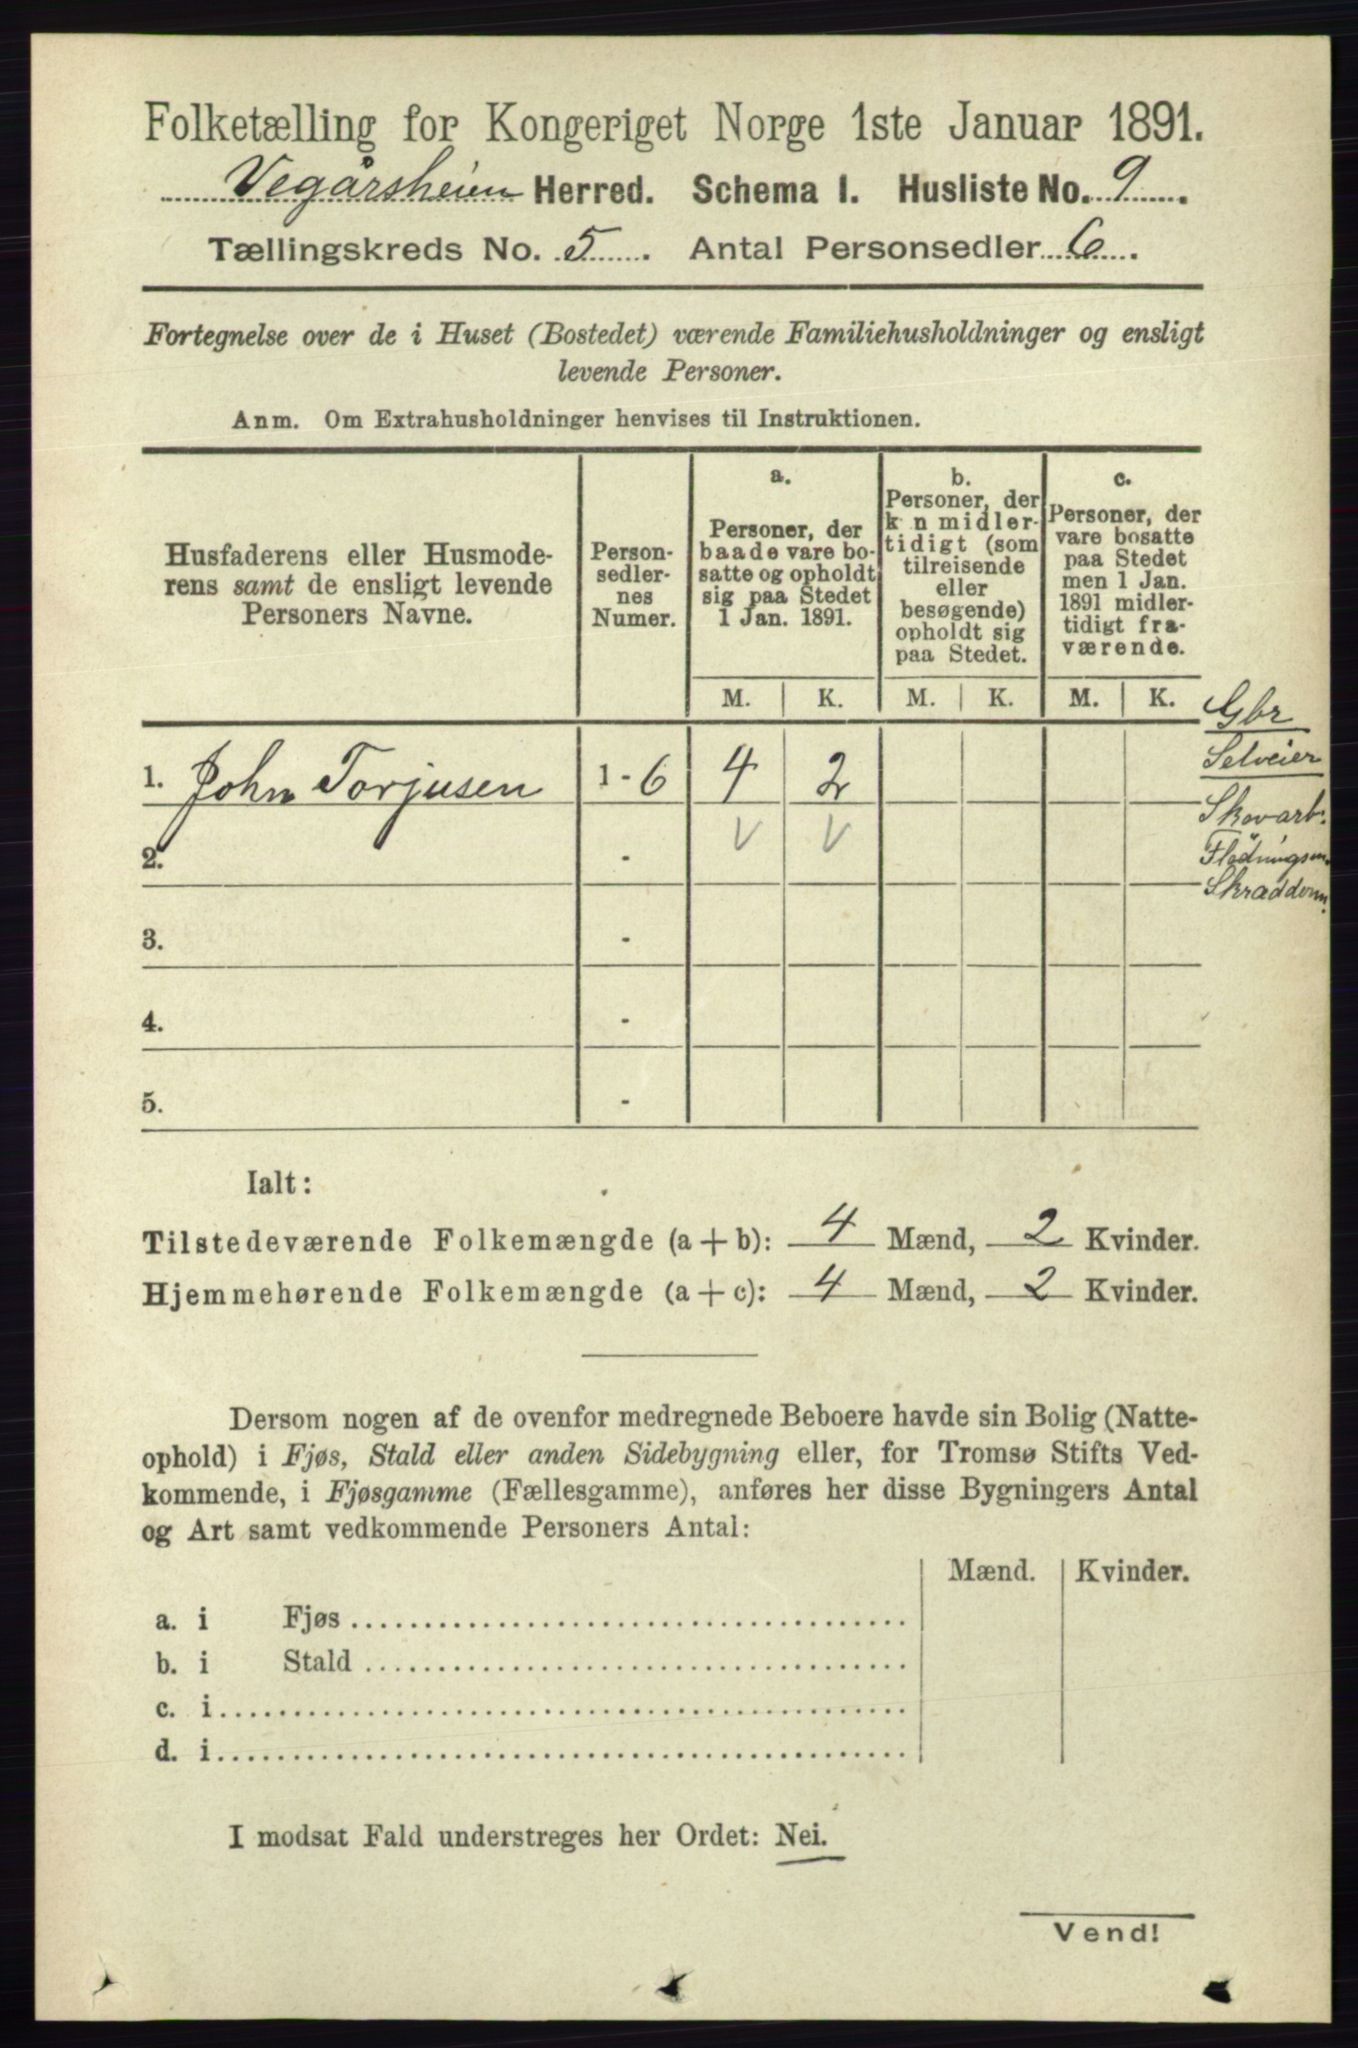 Folketælling for Kongeriget Norge 1ste Januar 1891.
Vegårsheien Herred. Schema I. Husliste No. 9.
Tællingskreds No. 5. Antal Personsedler 6.
Fortegnelse over de i Huset (Bostedet) værende Familiehusholdninger og ensligt
levende Personer.
Anm. Om Extrahusholdninger henvises til Instruktionen.
Husfaderens eller Husmode-
rens samt de ensligt levende
Personers Navne.
Person-
sedler-
nes
Numer.
a.
Personer, der
baade vare bo-
satte og opholdt
sig paa Stedet
1 Jan. 1891.
b.
Personer, der
k n midler-
tidigt (som
tilreisende
eller
besøgende)
opholdt sig
paa Stedet.
c.
Personer, der
vare bosatte
paa Stedet
men 1 Jan.
1891 midler-
tidigt fra-
værende.
M. K. M. K. M. K.
Gbr
Selveier
Skovarb.
Flödningsm.
1. John Torjusen 1 - 6 4 2
V V
2. -
3. -
4. -
5. -
Ialt:
Tilstedeværende Folkemængde (a + b): 4 Mænd, 2 Kvinder.
Hjemmehørende Folkemængde (a + c): 4 Mænd, 2 Kvinder.
Dersom nogen af de ovenfor medregnede Beboere havde sin Bolig (Natte-
ophold) i Fjøs, Stald eller anden Sidebygning eller, for Tromsø Stifts Ved-
kommende, i Fjøsgamme (Fællesgamme), anføres her disse Bygningers Antal
og Art samt vedkommende Personers Antal:
Mænd. Kvinder.
a. i Fjøs
b. i Stald
c. i
d. i
I modsat Fald understreges her Ordet: Nei.
Vend!